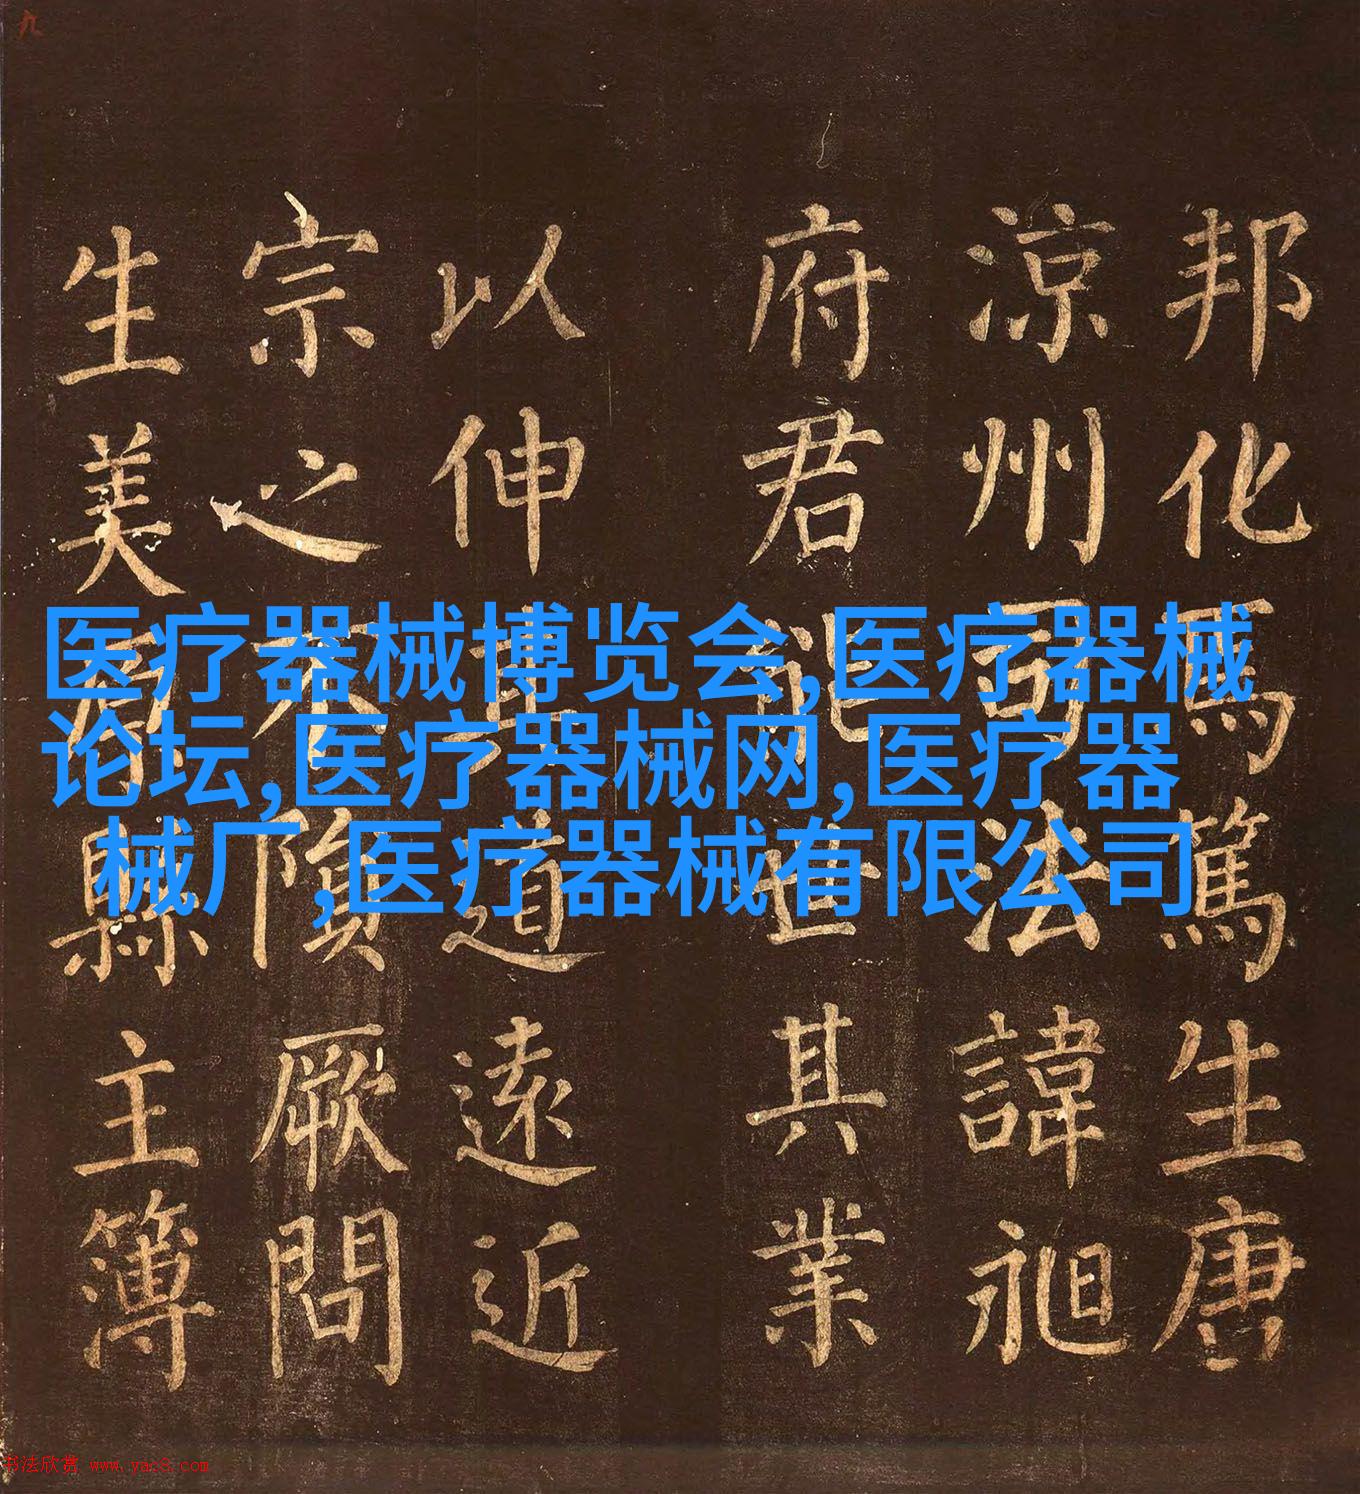 九
邦化馬篤生唐
涼州司法諱昶
府君能世其業
以伸道遠近
宗之不隕厥問
生美原縣主簿
医疗器械博览会,医疗器械
论坛,医疗器械网,医疗器
械厂,医疗器械有限公司
书法欣赏 www.yac8.com